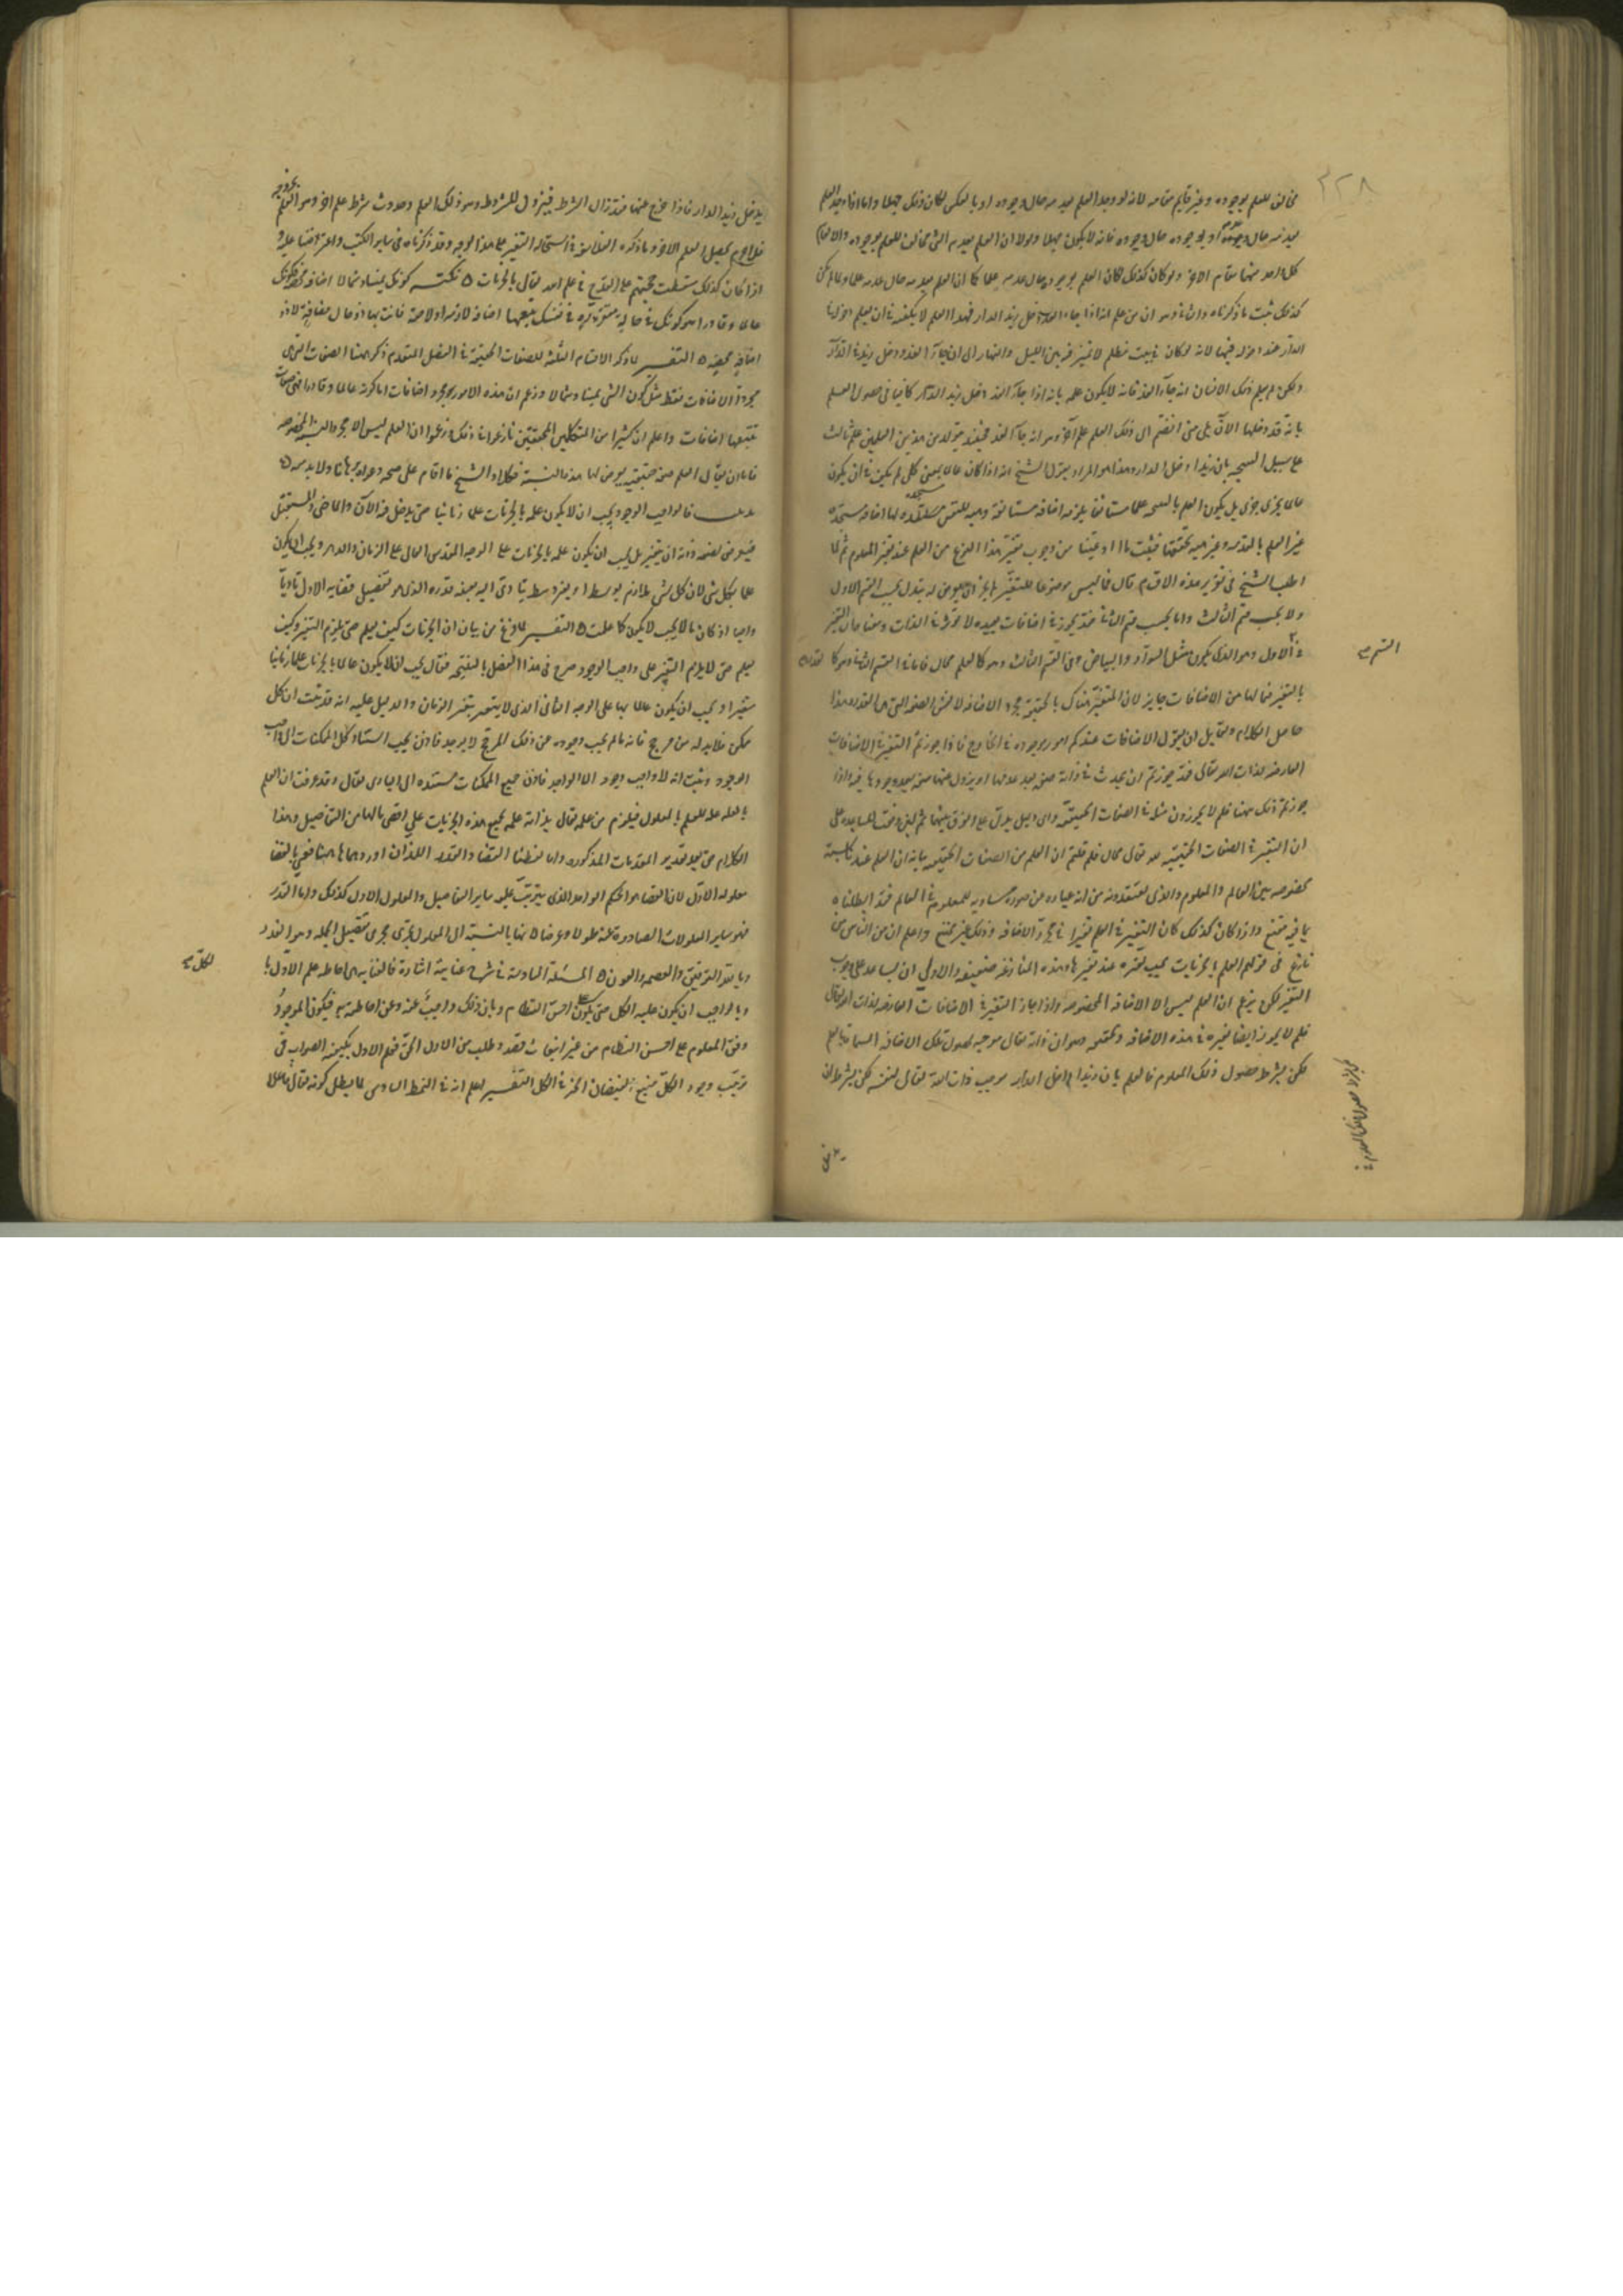 ٣٢٨
مخالف للعلم بوجوده وغير قايم مقامه لانه لو وجد العلم بعدمه حال وجوده او بالعكس لكان ذلك جهلا واما اذا وجد العلم
بعدمه حال عدمه او بوجوده حال وجوده فانه لا يكون جهلا ولولا ان العلم بعدم الشي مخالف للعلم بوجوده والا لقام
كل واحد منهما مقام الاخر ولو كان كذلك لكان العلم بوجوده حال عدمه علما كما ان العلم بعدمه حال عدمه علم ولما لم يكن
كذلك ثبت ما ذكرناه والثاني وهو ان من علم انه اذا جاء الغد دخل زيد الدار فهذا العلم لا يكفيه في ان يعلم دخول زيد
الدار عند دخوله فيها لانه لو كان في بيت مظلم لا تمييز فيه بين الليل والنهار الى ان جاء الغد ودخل زيد في الدار
ولكن لم يعلم ذلك الانسان انه جاء الغد فانه لا يكون علمه بانه اذا جاء الغد دخل زيد الدار كافيا في حصول العلم
بانه قد دخلها الآن بلى متى انضم الى ذلك العلم علم آخر وهو انه جاء الغد فحينئذ يتولد من هذين العلمين علم ثالث
على سبيل النتيجة بان زيدا دخل الدار وهذا هو المراد بقول الشيخ انه اذا كان عالما بمعنى كلي لم يكف في ان يكون
عالما بجزئي جزئي بل يكون العلم بالنتيجة علما مستانفا يلزمه اضافة مستانفة وهيه للنفس مستجده لها اضافة مستجدة
غير العلم بالمقدمه وغير هيه تحققها فثبت ما ادعينا من وجوب تغير هذا النوع من العلم عند تغير المعلوم ثم لما
اطنب الشيخ في تقرير هذه الاقسام قال فما ليس موضوعا للتغير لم يجز ان يعرض له تبدل بحسب القسم الاول
ولا بحسب القسم الثالث واما بحسب القسم الثاني فقد يجوز في اضافات بعيده لا تؤثر في الذات ومعناه ان التغير
في الاول وهو الذي يكون مثل السواد والبياض وفي القسم الثالث وهو كالعلم محال فاما في القسم الثاني وهو كالقدره
القسم صح
بالتغير فيما لها من الاضافات جايز لان المتغير هناك بالحقيقة مجرد الاضافة لا نفس الصفه التي هي القدره هذا
حاصل الكلام ولقايل ان يقول الاضافات عندكم امور موجوده في الخارج فاذا جوزتم التغير في الاضافات
العارضه لذات الله تعالى فقد جوزتم ان يحدث في ذاته صفه بعد عدمها او يزول عنها صفه بعد وجودها فيه واذا
جوزتم ذلك ههنا فلم لا يجوزون مثله في الصفات الحقيقيه واي دليل يدل على الفرق بينهما ثم لئن وقعت المساعدة على
ان التغير في الصفات الحقيقيه لله تعالى محال فلم قلتم ان العلم من الصفات الحقيقيه بيانه ان العلم عندنا نسبة
مخصوصه بين العالم والمعلوم والذي تعتقدونه من انه عباره عن صورة مساويه للمعلوم في العالم فقد ابطلناه
بما فيه مقنع واذا كان كذلك كان التغير في العلم تغيرا في مجرد الاضافه وذلك غير ممتنع واعلم ان من الناس من
نازع في قولهم العلم بالجزئيات يجب تغيره عند تغيرها وهذه المنازعه ضعيفه والاولى ان يساعد على وجوب
التغير لكن يزعم ان العلم ليس الا الاضافه المخصوصه واذا جاز التغير في الاضافات العارضه لذات الله تعالى
فلم لا يجوز ايضا تغيره في هذه الاضافه وتحقيقه وهو ان ذاته تعالى موجبه لحصول تلك الاضافه المسماة بالعلم
لكن بشرط حصول ذلك المعلوم فالعلم بان زيدا داخل الدار موجب ذات الله تعالى لنفسه لكن بشرط ان
يدخل زيد الدار فاذا خرج عنها فقد زال الشرط فيزول المشروط وهو ذلك العلم وحدوث شرط علم اخر وهو العلم بخروجه
فلا جرم يحصل العلم الاخر وما ذكره الفلاسفه في استحالة التغير على هذا الوجه وقد ذكرناه في ساير الكتب والاعتراضات عليه
اذا كان كذلك سقطت حجتهم على القدح في علم الله تعالى بالجزئيات ه نكته كونك يمينا وشمالا اضافه محضه وكونك
عالما وقادرا هو كونك في حالة متقررة في نفسك يتبعها اضافة لازمه او لاحقة فانت بهما ذو حال مضافة لا ذو
اضافة محضه ه التفسير لما ذكر الاقسام الثلثه للصفات الحقيقية في الفصل المتقدم ذكر ههنا الصفات التي هي
مجرد الاضافات فقط مثل كون الشي يمينا وشمالا وزعم ان هذه الامور مجرد اضافات اما كونه عالما وقادرا فهي صفات
تتبعها اضافات واعلم ان كثيرا من المتكلمين المحققين نازعوا في ذلك وزعموا ان العلم ليس الا مجرد النسبه المخصوصه
فاما ان يقال العلم صفه حقيقيه يعرض لها هذه النسبة فكلا والشيخ ما اقام على صحه دعواه برهانا ولا بد منه ه
تذنيب فالواجب الوجود يجب ان لا يكون علمه بالجزئيات علما زمانيا حتى يدخل فيه الآن والماضي والمستقبل
فيعرض لصفه ذاته ان يتغير بل يجب ان يكون علمه بالجزئيات على الوجه المقدس العالي على الزمان والدهر ويجب ان يكون
عالما بكل شي لان كل شي لازم له بوسط او بغير وسط يتادى اليه بعينه قدره الذي هو تفصيل قضايه الاول تاديا
واجبا اذ كان ما لا يجب لا يكون كما علمت ه التفسير لما فرغ من بيان ان الجزئيات كيف يعلم حتى يلزم التغير وكيف
يعلم حتى لا يلزم التغير على واجب الوجود صرح في هذا الفصل بالنتيجه فقال يجب ان لا يكون عالما بالجزئيات علما زمانيا
متغيرا ويجب ان يكون عالما بها على الوجه الثاني الذي لا يتغير بتغير الزمان والدليل عليه انه قد ثبت ان كل
ممكن فلا بد له من مرجح فانه ما لم يجب وجوده عن ذلك المرجح لا يوجد فاذن يجب استناد كل الممكنات الى واجب
الوجود وثبت انه لا واجب وجود الا الواحد فاذن جميع الممكنات مستنده الى الباري تعالى وقد عرفت ان العلم
بالعله علة للعلم بالمعلول فيلزم من علمه تعالى بذاته علمه بجميع هذه الجزئيات على اقصى ما لها من التفاصيل وهذا
الكلام حق بعد تقدير المقدمات المذكوره واما لفظتا القضا والقدر اللذان اوردهما ههنا فعني بالقضا
معلوله الاول لان القضا هو الحكم الواحد الذي يترتب عليه ساير التفاصيل والمعلول الاول كذلك واما القدر
فهو ساير المعلولات الصادره عنه طولا وعرضا لانها بالنسبة الى المعلول الاول تجري مجرى تفصيل الجمله وهو القدر
وبالله التوفيق والعصمه والعون ه المسئلة السادسة في شرح عنايته اشارة فالعنايه هي احاطه علم الاول بالكل
للكل صح
وبالواجب ان يكون عليه الكل حتى يكون على احسن النظام وبان ذلك واجب عنه وعن احاطته به فيكون الموجود
وفق المعلوم على احسن النظام من غير انبعاث قصد وطلب من الاول الحق فعلم الاول بكيفيه الصواب في
ترتيب وجود الكل منبع لفيضان الخير في الكل التفسير اعلم انه في النمط السادس لما ابطل كونه تعالى فاعلا